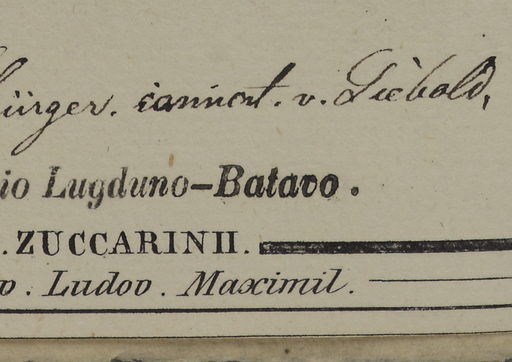 ürger. iannert. v. Siebold,
io Lugduno-Batavo.
. ZUCCARINII.
v. Ludov. Maximil.